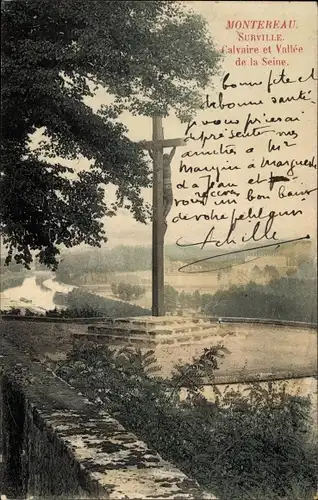 MONTEREAU.
SURVILLE.
Calvaire et Vallée
de la Seine.
bonne fête et
bonne santé
je vous prierai
présenter mes
amitiés à Mr
Marguin à Marguerite
à Jean et
recevez un bon baiser
de votre petit
Achille